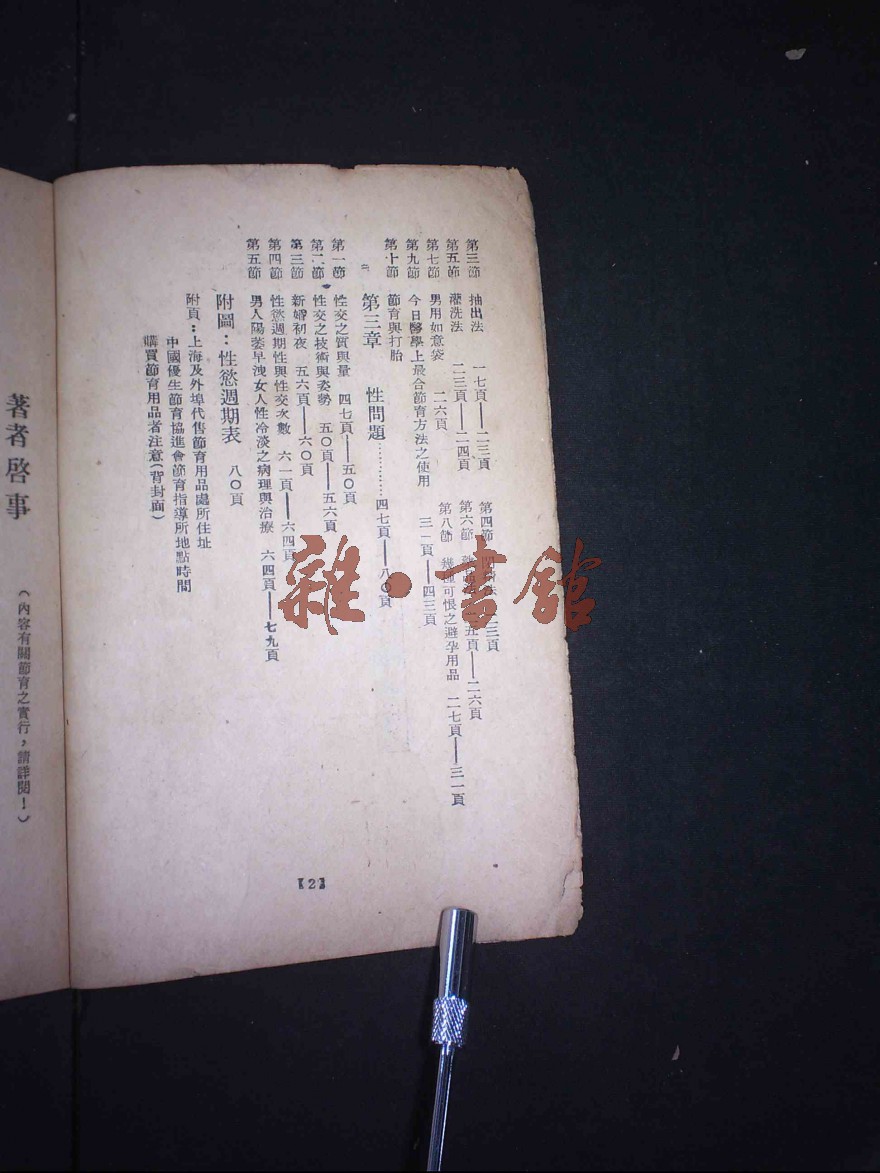 第三節 抽出法 一七頁——二三頁
第四節 二三頁
第五節 灌洗法 二三頁——二四頁
第六節 五頁——二六頁
第七節 男用如意袋 二六頁
第八節 幾種可恨之避孕用品 二七頁——三一頁
第九節 今日醫學上最合節育方法之使用 三一頁——四三頁
第十節 節育與打胎
第三章 性問題…………四七頁——八〇頁
第一節 性交之質與量 四七頁——五〇頁
第二節 性交之技術與姿勢 五〇頁——五六頁
第三節 新婚初夜 五六頁——六〇頁
第四節 性慾週期性與性交次數 六一頁——六四頁
第五節 男人陽萎早洩女人性冷淡之病理與治療 六四頁——七九頁
附圖：性慾週期表 八〇頁
附頁：上海及外埠代售節育用品處所住址
中國優生節育協進會節育指導所地點時間
購買節育用品者注意(背封面)
【2】
著者啓事
(內容有關節育之實行，請詳閱！)
雜·書館